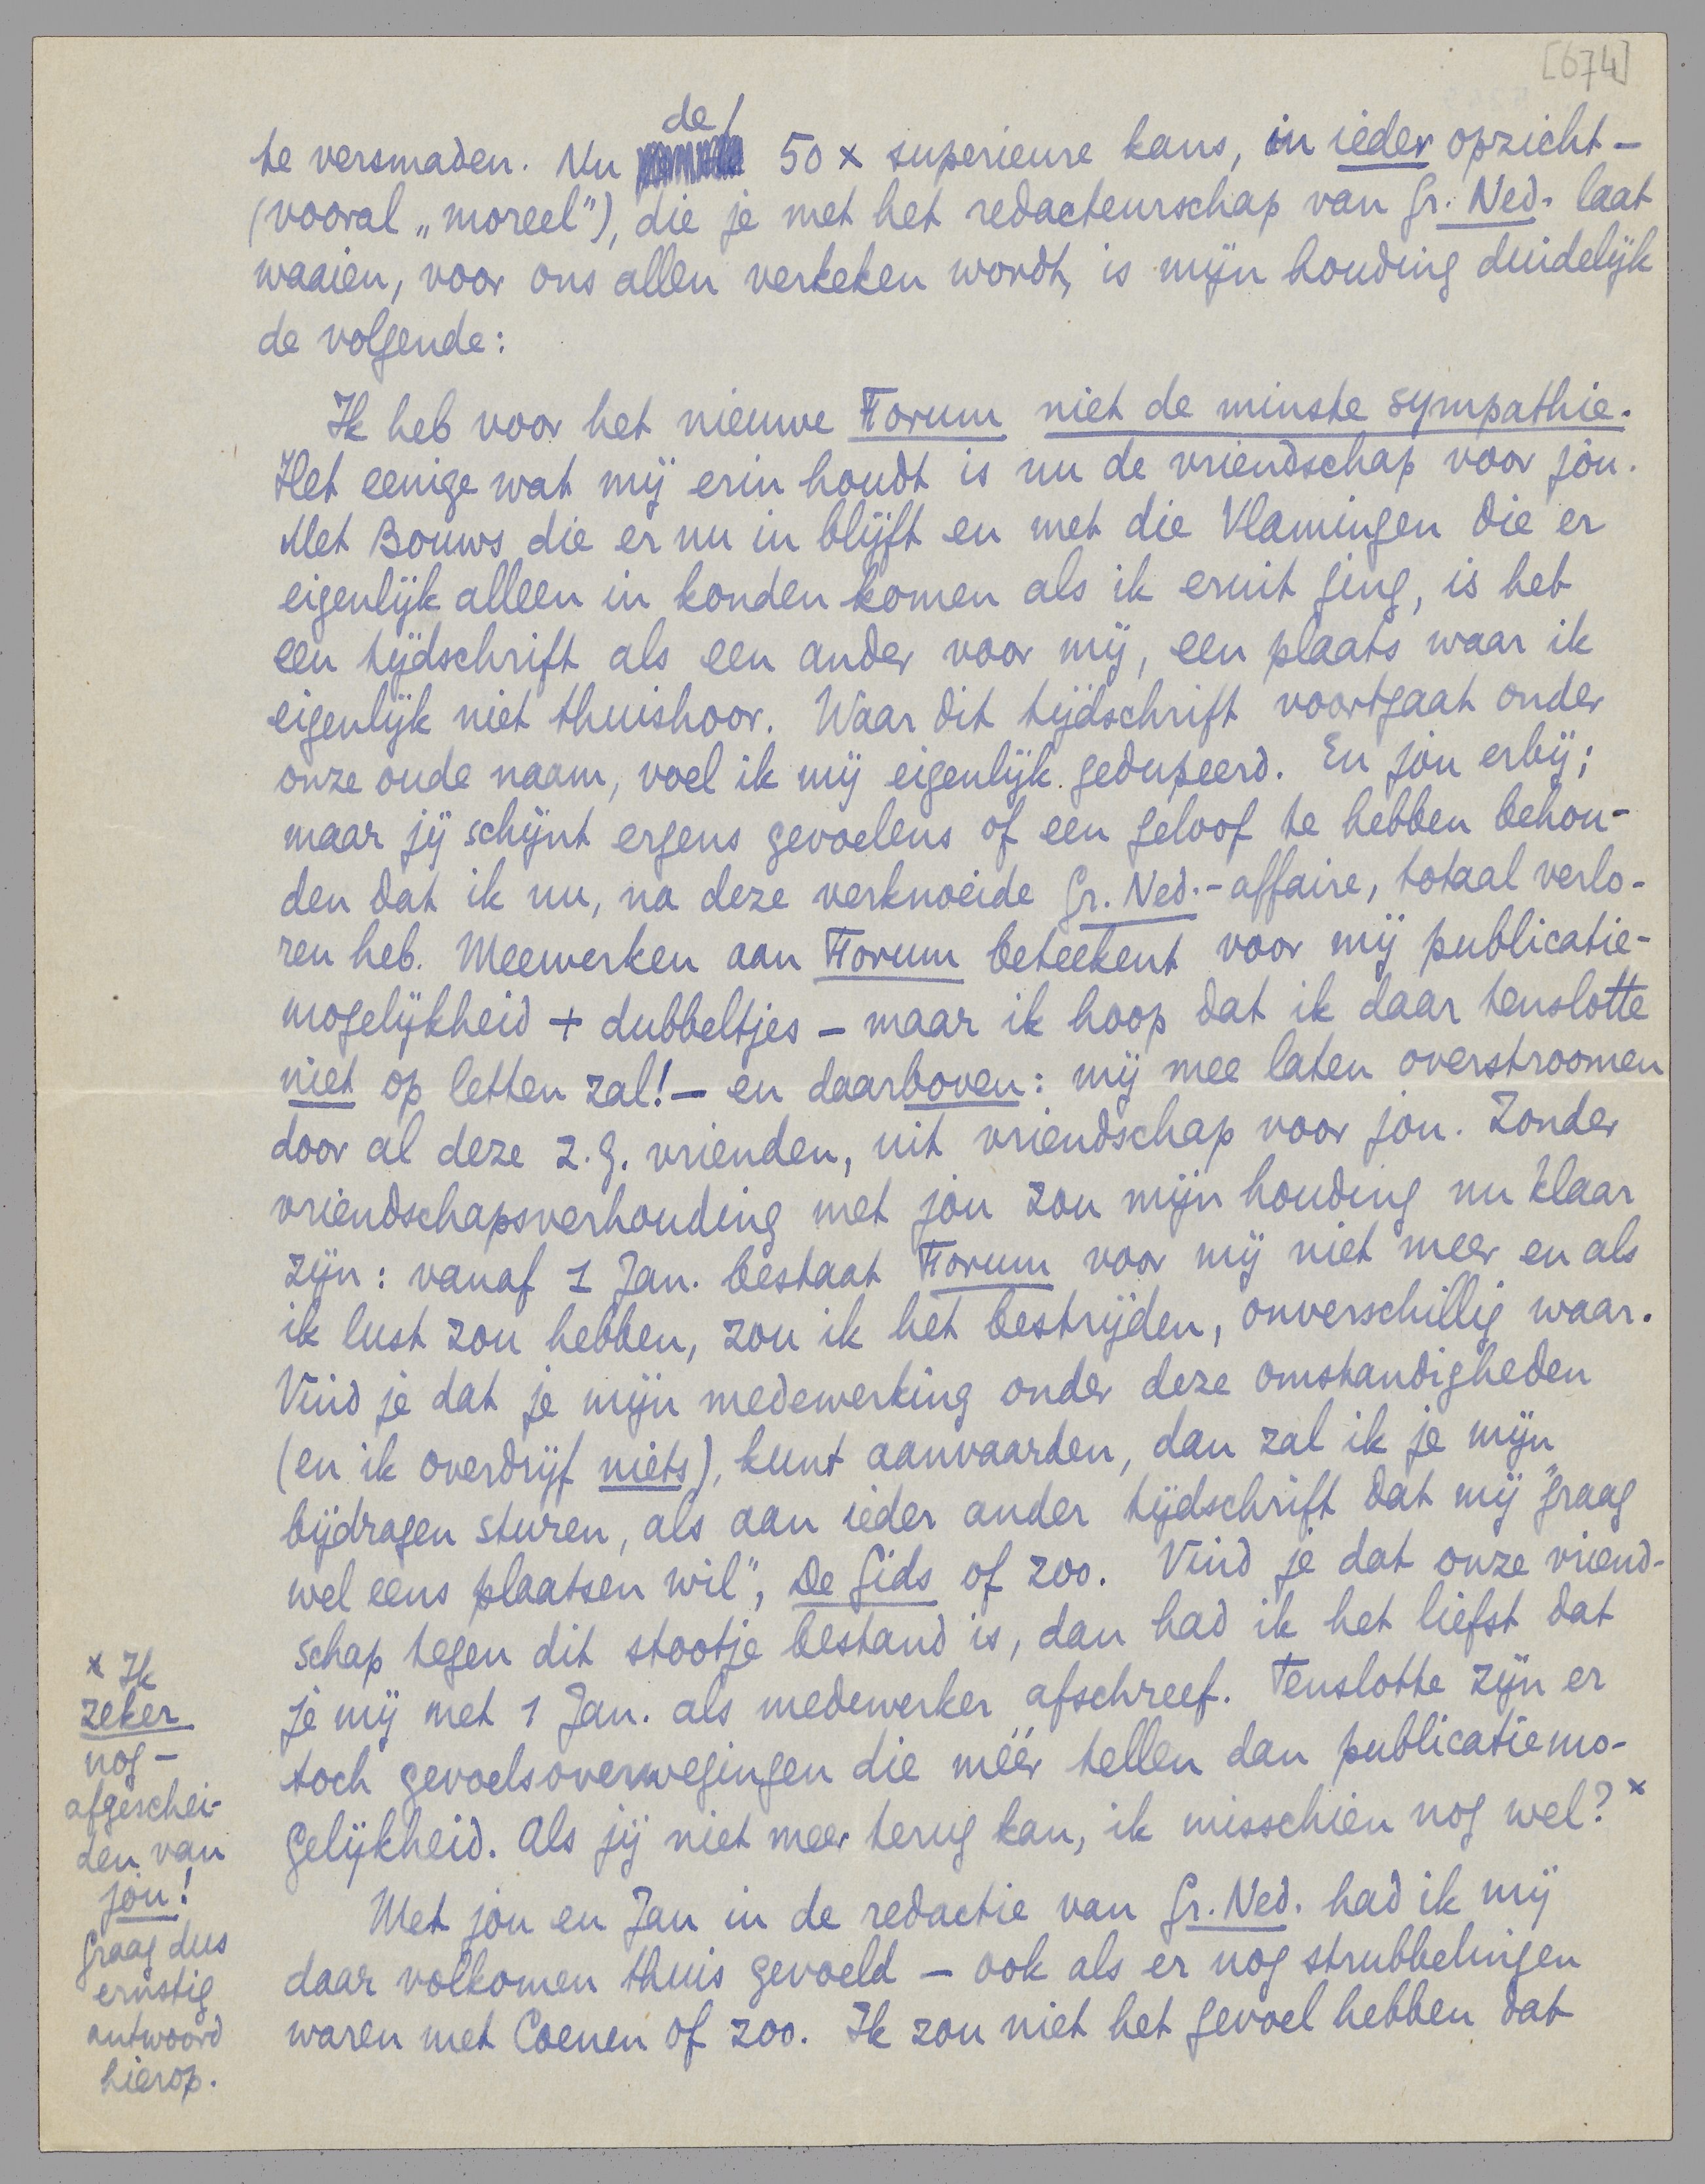 [674]
te versmaden. Nu de 50 x superieure kans, in ieder opzicht –
(vooral „moreel"), die je met het redacteurschap van Gr. Ned. laat
waaien, voor ons allen verkeken wordt, is mijn houding duidelijk
de volgende:
Ik heb voor het nieuwe Forum niet de minste sympathie.
Het eenige wat mij erin houdt is nu de vriendschap voor jou.
Met Bouws die er nu in blijft en met die Vlamingen die er
eigenlijk alleen in konden komen als ik eruit ging, is het
een tijdschrift als een ander voor mij, een plaats waar ik
eigenlijk niet thuishoor. Waar dit tijdschrift voortgaat onder
onze oude naam, voel ik mij eigenlijk gedupeerd. En jou erbij;
maar jij schijnt ergens gevoelens of een geloof te hebben behou-
den dat ik nu, na deze verknoeide Gr. Ned.-affaire, totaal verlo-
ren heb. Meewerken aan Forum beteekent voor mij publicatie-
mogelijkheid + dubbeltjes – maar ik hoop dat ik daar tenslotte
niet op letten zal! – en daarboven: mij mee laten overstroomen
door al deze z.g. vrienden, uit vriendschap voor jou. Zonder
vriendschapsverhouding met jou zou mijn houding nu klaar
zijn: vanaf 1 Jan. bestaat Forum voor mij niet meer en als
ik lust zou hebben, zou ik het bestrijden, onverschillig waar.
Vind je dat je mijn medewerking onder deze omstandigheden
(en ik overdrijf niets), kunt aanvaarden, dan zal ik je mijn
bijdragen sturen, als aan ieder ander tijdschrift dat mij "graag
wel eens plaatsen wil", De Gids of zoo. Vind je dat onze vriend-
schap tegen dit stootje bestand is, dan had ik het liefst dat
je mij met 1 Jan. als medewerker afschreef. Tenslotte zijn er
toch gevoelsoverwegingen die méér tellen dan publicatiemo-
gelijkheid. Als jij niet meer terug kan, ik misschien nog wel? x
Met jou en Jan in de redactie van Gr. Ned. had ik mij
daar volkomen thuis gevoeld – ook als er nog strubbelingen
waren met Coenen of zoo. Ik zou niet het gevoel hebben dat
x Ik
zeker
nog –
afgeschei-
den van
jou!
Graag dus
ernstig
antwoord
hierop.